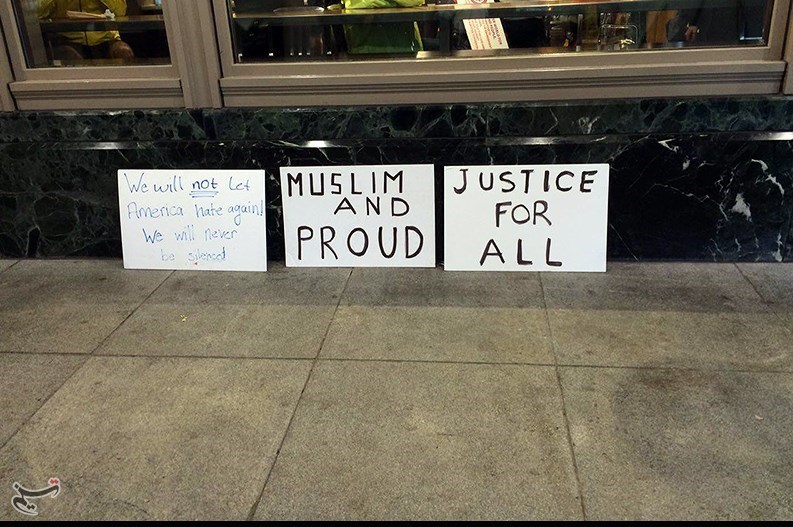 We will not let
America hate again!
We will never
be silenced
MUSLIM
AND
PROUD
JUSTICE
FOR
ALL